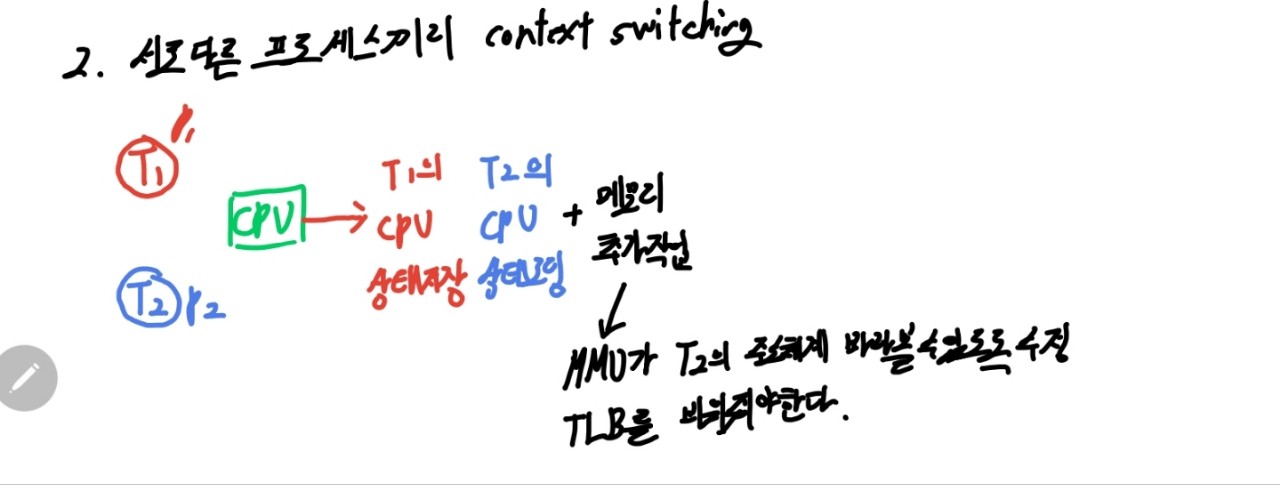 2. 서로 다른 프로세스끼리 context switching
T1 P1
CPU
T1의 CPU 상태저장
T2의 CPU 상태로딩
+ 메모리 추가작업
T2 P2
MMU가 T2의 주소체계 바라볼 수 있도록 수정
TLB를 비워줘야한다.